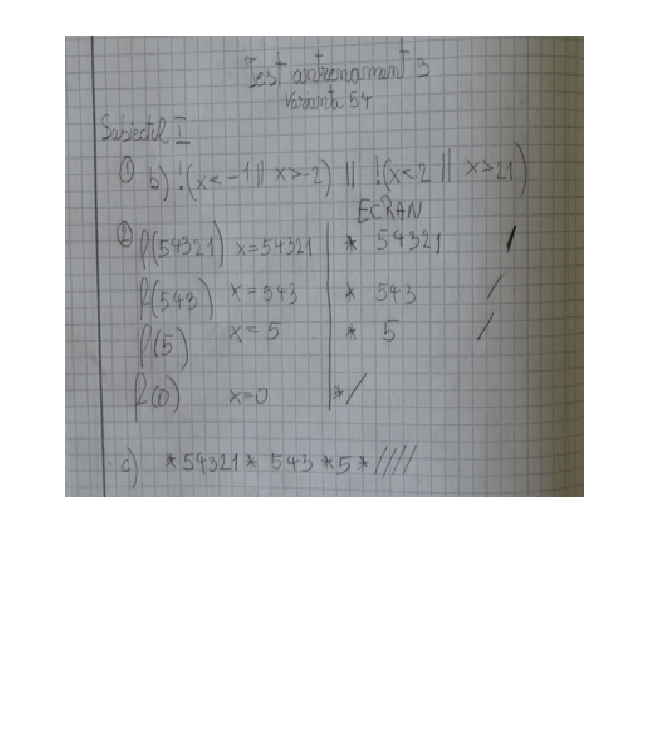 Test antrenament 3
Varianta 54
Subiectul I
① b) !(x<-1 || x>-2) || !(x<2 || x>21)
ECRAN
② f(54321) x=54321 | * 54321 /
f(543) x=543 | * 543 /
f(5) x=5 | * 5 /
f(0) x=0 | */
c) *54321* 543 *5*////